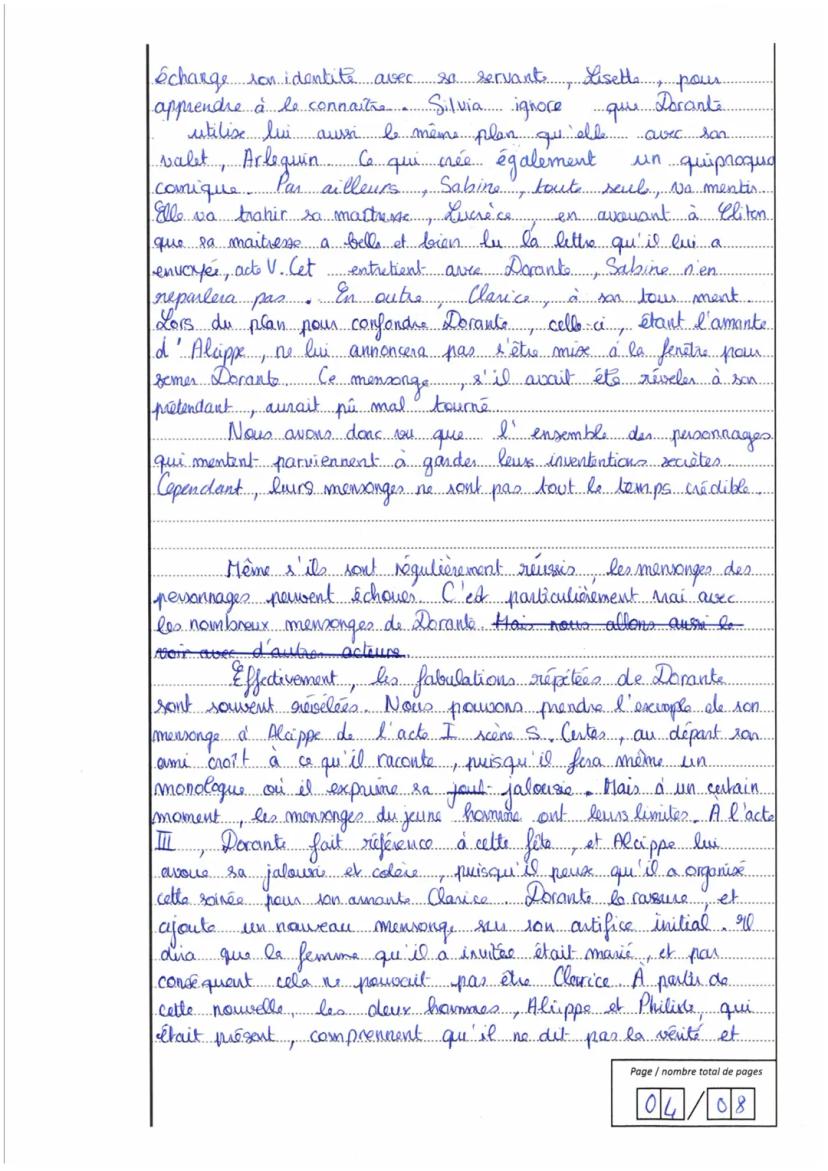 échange son identité avec sa servante, Lisette, pour
apprendre à le connaître. Silvia ignore que Dorante
utilise lui aussi le même plan qu'elle avec son
valet, Arlequin. Ce qui crée également un quiproquo
comique. Par ailleurs, Sabine, toute seule, va mentir.
Elle va trahir sa maîtresse, Lucrèce, en avouant à Cliton
que sa maitresse a belle et bien lu la lettre qu'il lui a
envoyée, acte V. Cet entretient avec Dorante, Sabine n'en
reparlera pas. En outre, Clarice, à son tour ment.
Lors du plan pour confondre Dorante, celle-ci, étant l'amante
d'Alcippe, ne lui annoncera pas s'être mise à la fenêtre pour
semer Dorante. Ce mensonge, s'il avait été révéler à son
prétendant, aurait pû mal tourné.
Nous avons donc vu que l'ensemble des personnages
qui mentent parviennent à garder leurs invententions secrètes.
Cependant, leurs mensonges ne sont pas tout le temps crédible.
Même s'ils sont régulièrement réussis, les mensonges des
personnages peuvent échouer. C'est particulièrement vrai avec
les nombreux mensonges de Dorante. Mais nous allons aussi le
voir avec d'autres acteurs.
Effectivement, les fabulations répétées de Dorante
sont souvent révélées. Nous pouvons prendre l'exemple de son
mensonge à Alcippe de l'acte I scène 5. Certes, au départ son
ami croît à ce qu'il raconte, puisqu'il fera même un
monologue où il exprime sa jalousie. Mais à un certain
moment, les mensonges du jeune homme ont leurs limites. À l'acte
III, Dorante fait référence à cette fête, et Alcippe lui
avoue sa jalousie et colère, puisqu'il pense qu'il a organisé
cette soirée pour son amante Clarice. Dorante le rassure, et
ajoute un nouveau mensonge sur son artifice initial. Il
dira que la femme qu'il a invitée était marié, et par
conséquent cela ne pouvait pas être Clarice. À partir de
cette nouvelle, les deux hommes, Alcippe et Philiste, qui
était présent, comprennent qu'il ne dit pas la vérité et
Page / nombre total de pages
04/08